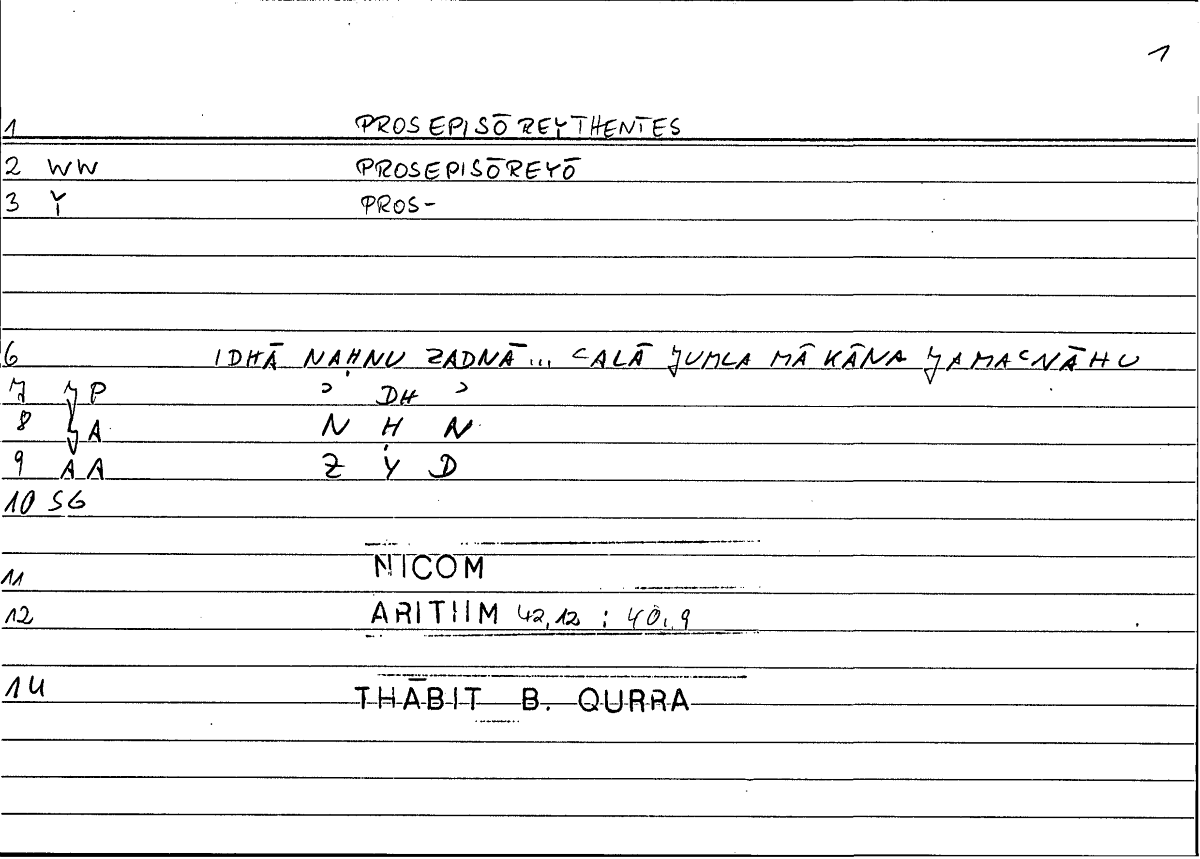 1
1 PROSEPISŌREYTHENTES
2 WW PROSEPISŌREYŌ
3 Y PROS-
6 IDHĀ NAḤNU ZADNĀ... ʿALĀ JUMLA MĀ KĀNA JAMAʿNĀHU
7 JP ʾ DH ʾ
8 A N Ḥ N
9 AA Z Y D
10 SG
11 NICOM
12 ARITHM 42,12 : 40,9
14 THĀBIT B. QURRA